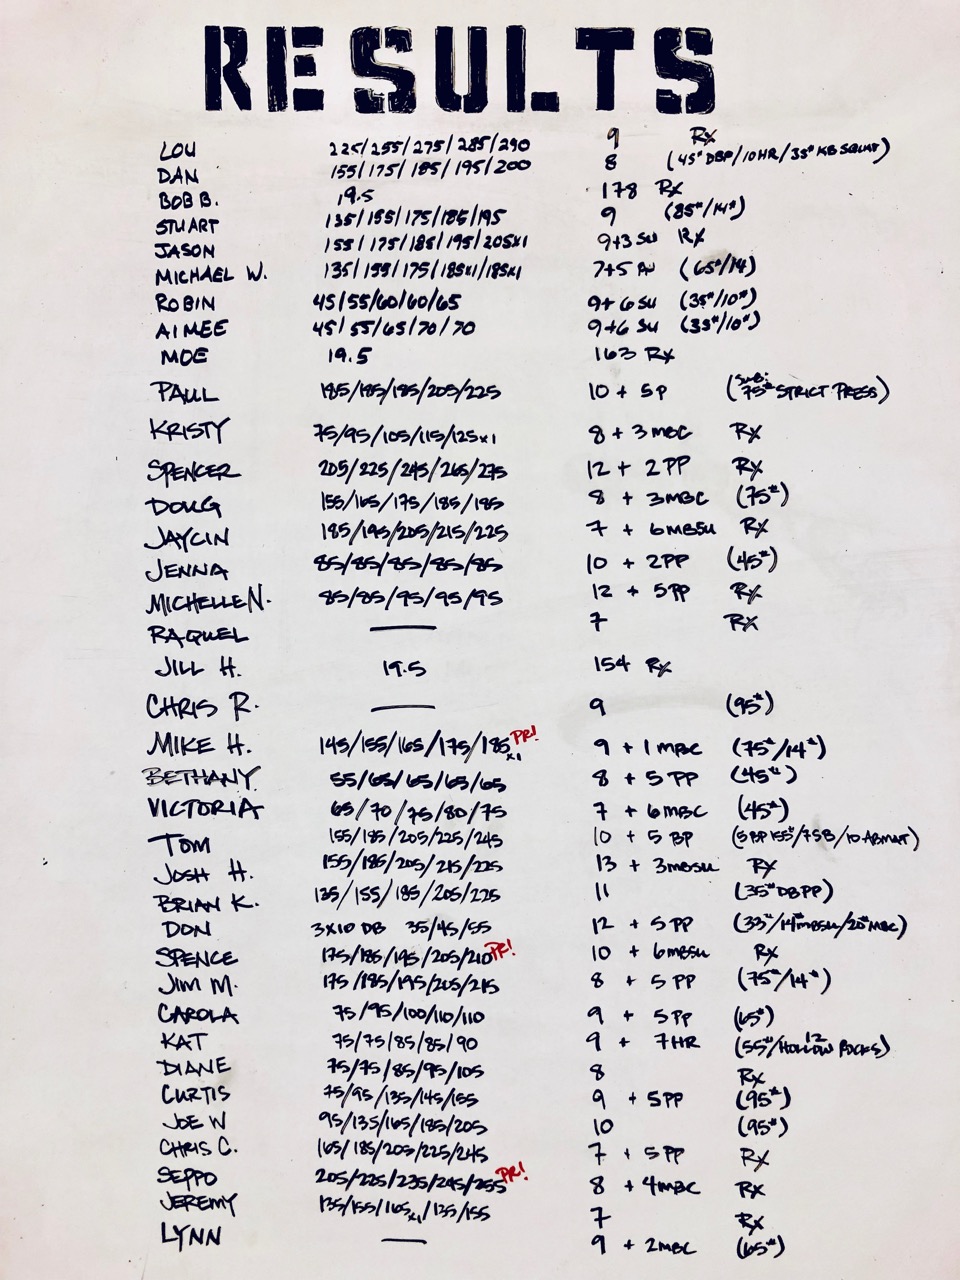 RESULTS
LOU 225/255/275/285/290 9 Rx
DAN 155/175/185/195/200 8 (45# DBP/10HR/35# KB SQUAT)
BOB B. 19.5 178 Rx
STUART 135/155/175/185/195 9 (85#/14#)
JASON 155/175/185/195/205x1 9+3 SU Rx
MICHAEL W. 135/155/175/185x1/185x1 7+5 (65#/14)
ROBIN 45/55/60/60/65 9+6 SU (35#/10#)
AIMEE 45/55/65/70/70 9+6 SU (35#/10#)
MOE 19.5 163 Rx
PAUL 185/185/185/205/225 10 + 5P (SUB: 75# STRICT PRESS)
KRISTY 75/95/105/115/125x1 8 + 3 MBC Rx
SPENCER 205/225/245/265/275 12 + 2 PP Rx
DOUG 155/165/175/185/185 8 + 3MBC (75#)
JAYCIN 185/195/205/215/225 7 + 6MBSU Rx
JENNA 85/85/85/85/85 10 + 2PP (45#)
MICHELLE N. 85/85/95/95/95 12 + 5PP Rx
RAQUEL — 7 Rx
JILL H. 19.5 154 Rx
CHRIS R. — 9 (95#)
MIKE H. 145/155/165/175/185x1 PR! 9 + 1 MBC (75#/14#)
BETHANY 55/65/65/65/65 8 + 5 PP (45#)
VICTORIA 65/70/75/80/75 7 + 6MBC (45#)
TOM 155/185/205/225/245 10 + 5 BP (5 BP 155#/7SB/10 ABMAT)
JOSH H. 155/185/205/215/225 13 + 3MBSU Rx
BRIAN K. 135/155/185/205/225 11 (35# DBPP)
DON 3x10 DB 35/45/55 12 + 5 PP (33#/14#MBSU/20#MBC)
SPENCE 175/185/195/205/210 PR! 10 + 6MBSU Rx
JIM M. 175/185/195/205/215 8 + 5 PP (75#/14#)
CAROLA 75/95/100/110/110 9 + 5PP (65#)
KAT 75/75/85/85/90 9 + 7HR (55#/12 HOLLOW ROCKS)
DIANE 75/75/85/95/105 8 Rx
CURTIS 75/95/135/145/155 9 + 5PP (95#)
JOE W 95/135/165/185/205 10 (95#)
CHRIS C. 165/185/205/225/245 7 + 5PP Rx
SEPPO 205/225/235/245/255 PR! 8 + 4MBC Rx
JEREMY 135/155/165x1/135/155 7 Rx
LYNN — 9 + 2MBC (65#)